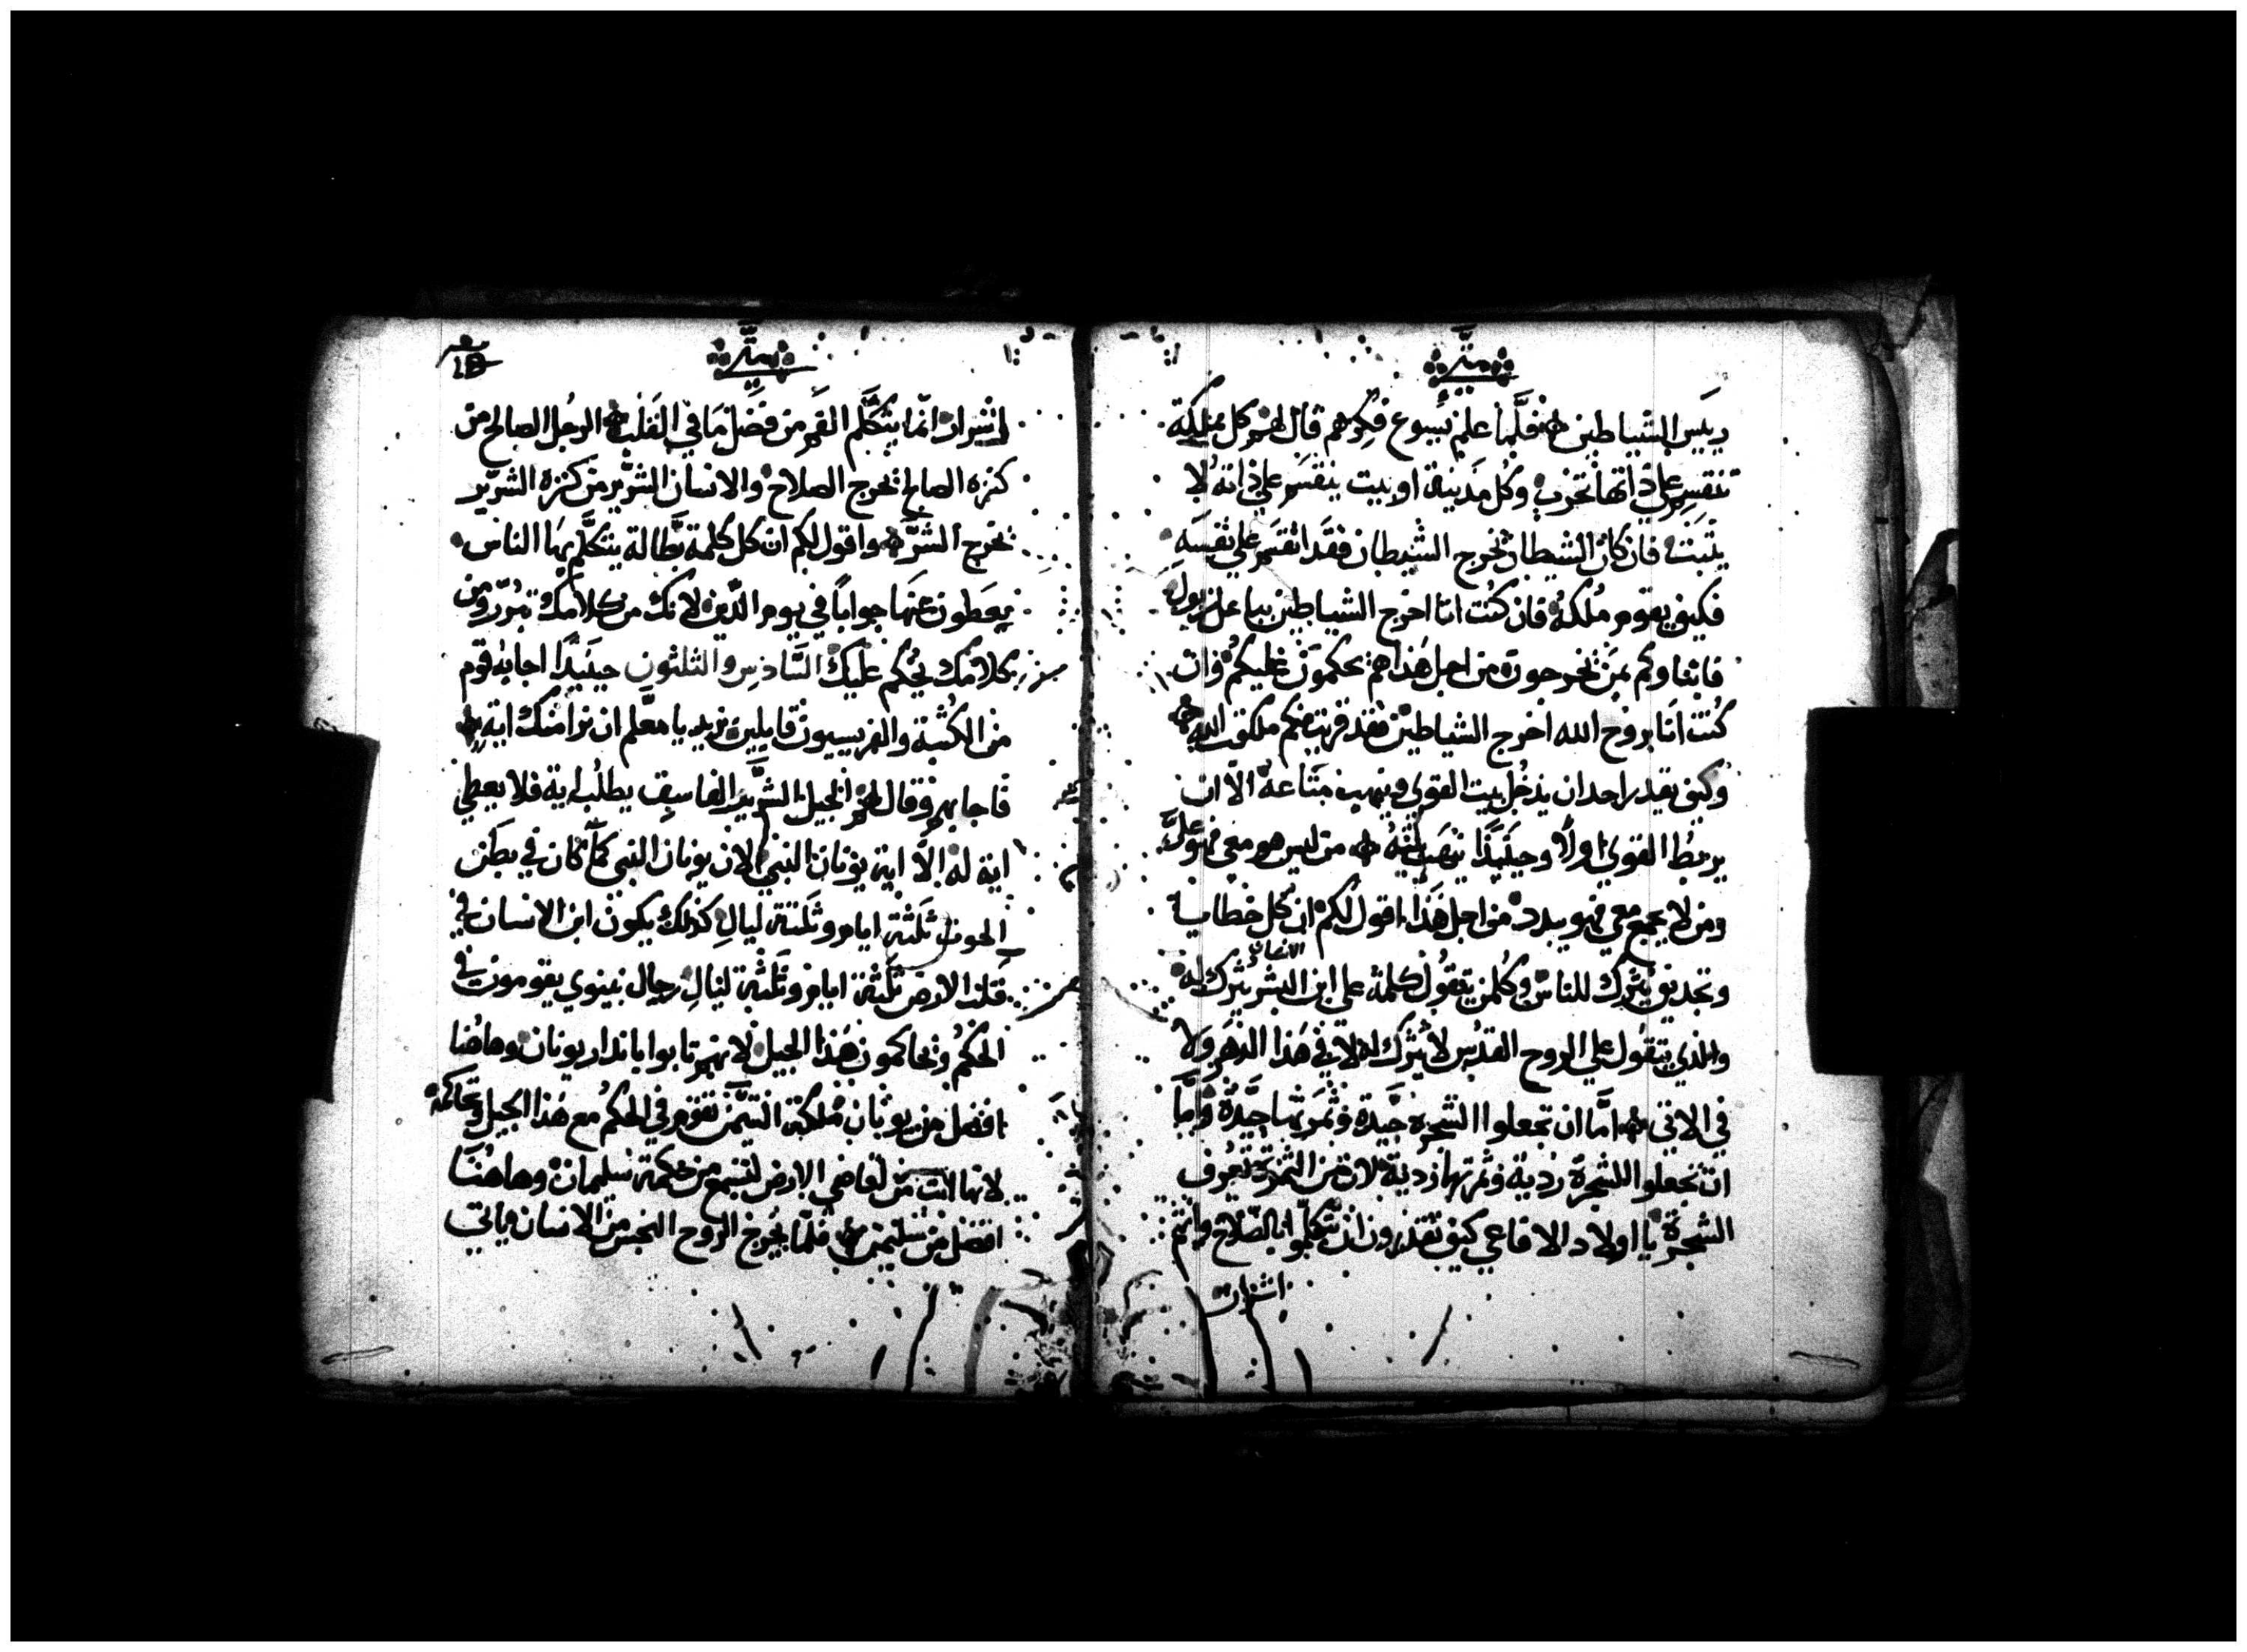 متى
رييس الشياطين فلما علم يسوع فكرهم قال لهم كل مملكة
تنقسم على ذاتها تخرب وكل مدينة او بيت ينقسم على ذاته لا
يثبت فان كان الشيطان يخرج الشيطان فقد انقسم على نفسه
فكيف يقوم ملكه فان كنت انا اخرج الشياطين بباعلزبول
فابناوكم بمن يخرجون من اجل هذا هم يحكمون عليكم وان
كنت انا بروح الله اخرج الشياطين فقد قربت منكم ملكوت الله
وكيف يقدر احد ان يدخل بيت القوي وينهب متاعه الا ان
يربط القوي اولا وحينيذا ينهب بيته من ليس هو معي فهو علي
ومن لا يجمع معي فهو يبدد من اجل هذا اقول لكم ان كل خطايا
الانسان
وتجديف يترك للناس وكلمن يقول كلمة على ابن البشر يترك له
والذي يقول على الروح القدس لا يترك له لا في هذا الدهر ولا
في الاتي اما ان تجعلوا الشجرة جيدة وثمرتها جيدة واما
ان تجعلوا الشجرة ردية وثمرتها ردية لان من الثمرة تعرف
الشجرة يا اولاد الافاعي كيف تقدرون ان تتكلموا بالصلاح وانتم
اشرار
متى
اشرار انما يتكلم الفم من فضل ما في القلب الرجل الصالح من
كنزه الصالح يخرج الصلاح والانسان الشرير من كنزه الشرير
يخرج الشر واقول لكم ان كل كلمة بطالة يتكلم بها الناس
يعطون عنها جوابا في يوم الدين لانك من كلامك تبرر ومن
كلامك يحكم عليك السادس والثلثون حينيذا اجابه قوم
من الكتبة والفريسيون قايلين نريد يا معلم ان نرا منك اية
فاجابهم وقال لهم الجيل الشرير الفاسق يطلب اية فلا يعطي
اية له الا اية يونان النبي لان يونان النبي كما كان في بطن
الحوت ثلثة ايام وثلثة ليال كذلك يكون ابن الانسان في
قلب الارض ثلثة ايام وثلثة ليال رجال نينوي يقومون في
الحكم ويحاكمون هذا الجيل لانهم تابوا بانذار يونان وهاهنا
افضل من يونان ملكة التيمن تقوم في الحكم مع هذا الجيل وتحاكمه
لانها اتت من اقاصي الارض لتسمع من حكمة سليمان وهاهنا
افضل من سليمن فلما يخرج الروح النجس من الانسان ياتي